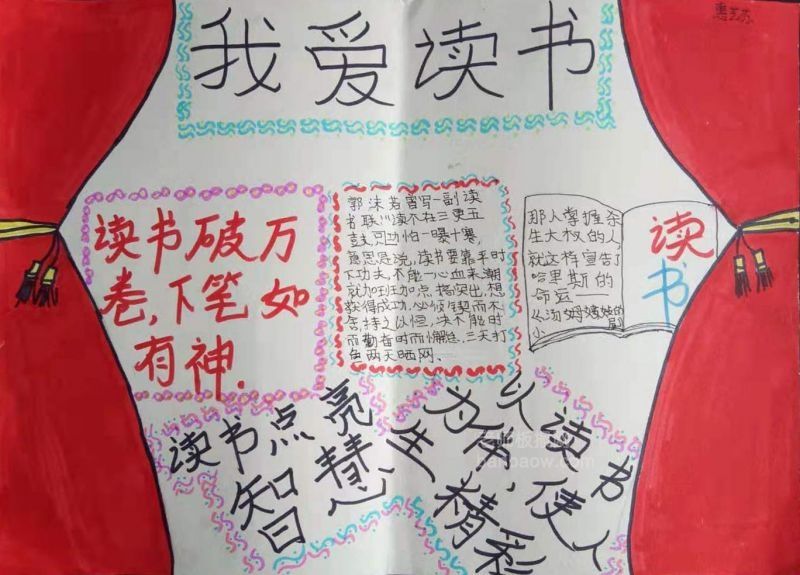 我爱读书
读书破万
卷,下笔如
有神.
郭沫若曾写一副读
书联:"读不在三更五
鼓,功边怕一曝十寒,
意思是说,读书要靠平时
下功夫,不能一心血来潮
就加班加点搞突出,想
获得成功,必须锲而不
舍,持之以恒,决不能时
而勤奋时而懈怠,三天打
鱼两天晒网、
那人掌握杀
生大权的人,
就这样宣告了
哈里斯的
命运——
《汤姆叔叔的
小屋
读
书
读书点亮
智慧
以读书
为伴,使人
生精彩
banbaow.com